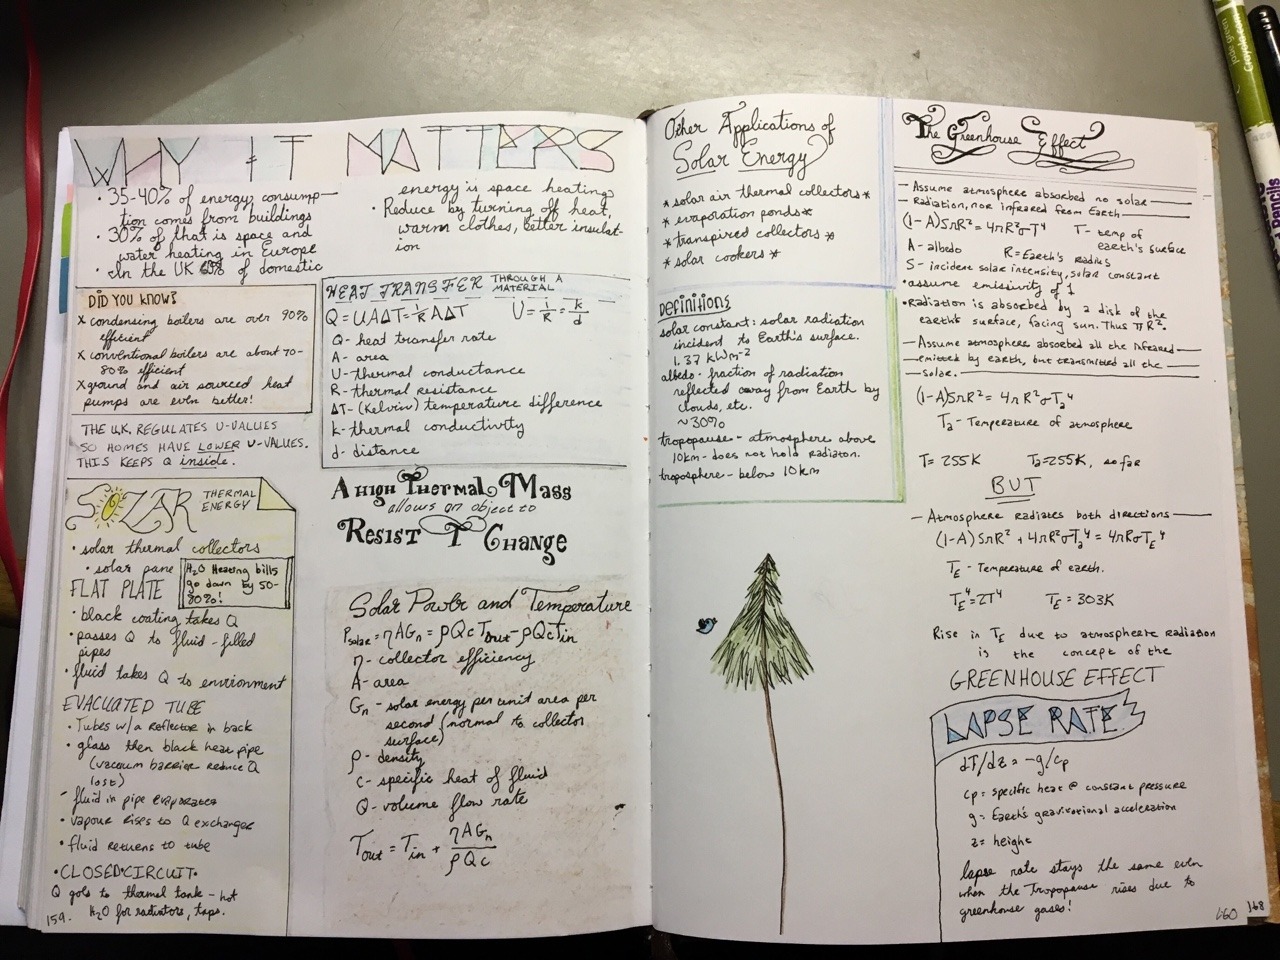 WHY IT MATTERS
• 35-40% of energy consump-
tion comes from buildings
• 30% of that is space and
water heating in Europe
• In the UK % of domestic
energy is space heating
• Reduce by turning off heat,
warm clothes, better insulat-
ion
DID YOU KNOW?
x condensing boilers are over 90%
efficient
x conventional boilers are about 70-
80% efficient
x ground and air sourced heat
pumps are even better!
THE U.K. REGULATES U-VALUES
SO HOMES HAVE LOWER U-VALUES.
THIS KEEPS Q inside.
HEAT TRANSFER THROUGH A
MATERIAL
Q = UAΔT = 1/R AΔT U = 1/R = k/d
Q - heat transfer rate
A - area
U - thermal conductance
R - thermal resistance
ΔT - (Kelvin) temperature difference
k - thermal conductivity
d - distance
SOLAR THERMAL
ENERGY
• solar thermal collectors
• solar pane
H2O Heating bills
go down by 50-
80%!
FLAT PLATE
• black coating takes Q
• passes Q to fluid-filled
pipes
• fluid takes Q to environment
EVACUATED TUBE
• Tubes w/a reflector in back
• glass then black heat pipe
(vacuum barrier reduce Q
lost)
- fluid in pipe evaporates
• vapour rises to Q exchanger
• fluid returns to tube
• CLOSED•CIRCUIT•
Q goes to thermal tank - hot
H2O for radiators, taps.
159.
A HIGH THERMAL MASS
allows an object to
RESIST T CHANGE
Solar Power and Temperature
Psolar = ηAGn = ρQcTout - ρQcTin
η - collector efficiency
A - area
Gn - solar energy per unit area per
second (normal to collector
surface)
ρ - density
c - specific heat of fluid
Q - volume flow rate
Tout = Tin + ηAGn/ρQc
Other Applications of
Solar Energy
* solar air thermal collectors *
* evaporation ponds *
* transpired collectors *
* solar cookers *
Definitions
solar constant: solar radiation
incident to Earth's surface.
1.37 kWm⁻²
albedo - fraction of radiation
reflected away from Earth by
clouds, etc.
~30%
tropopause - atmosphere above
10km - does not hold radiaton.
troposphere - below 10km
The Greenhouse Effect
- Assume atmosphere absorbed no solar
- Radiation, nor infrared from Earth
(1-A)SπR² = 4πR²σT⁴ T - temp of
earth's surface
A - albedo R = Earth's Radius
S - incident solar intensity, solar constant
• assume emissivity of 1
• Radiation is absorbed by a disk of the
earth's surface, facing sun. Thus πR².
- Assume atmosphere absorbed all the infrared
- emitted by earth, but transmitted all the
- solar.
(1-A)SπR² = 4πR²σTa⁴
Ta - Temperature of atmosphere
T = 255K Ta = 255K, so far
BUT
- Atmosphere radiates both directions
(1-A)SπR² + 4πR²σTa⁴ = 4πRσTE⁴
TE - Temperature of earth.
TE⁴ = 2T⁴ TE = 303K
Rise in TE due to atmosphere radiation
is the concept of the
GREENHOUSE EFFECT
LAPSE RATE
dT/dz = -g/cp
cp = specific heat @ constant pressure
g = Earth's gravitational acceleration
z = height
lapse rate stays the same even
when the Tropopause rises due to
greenhouse gases!
160
168
Crayola.com
Pencils